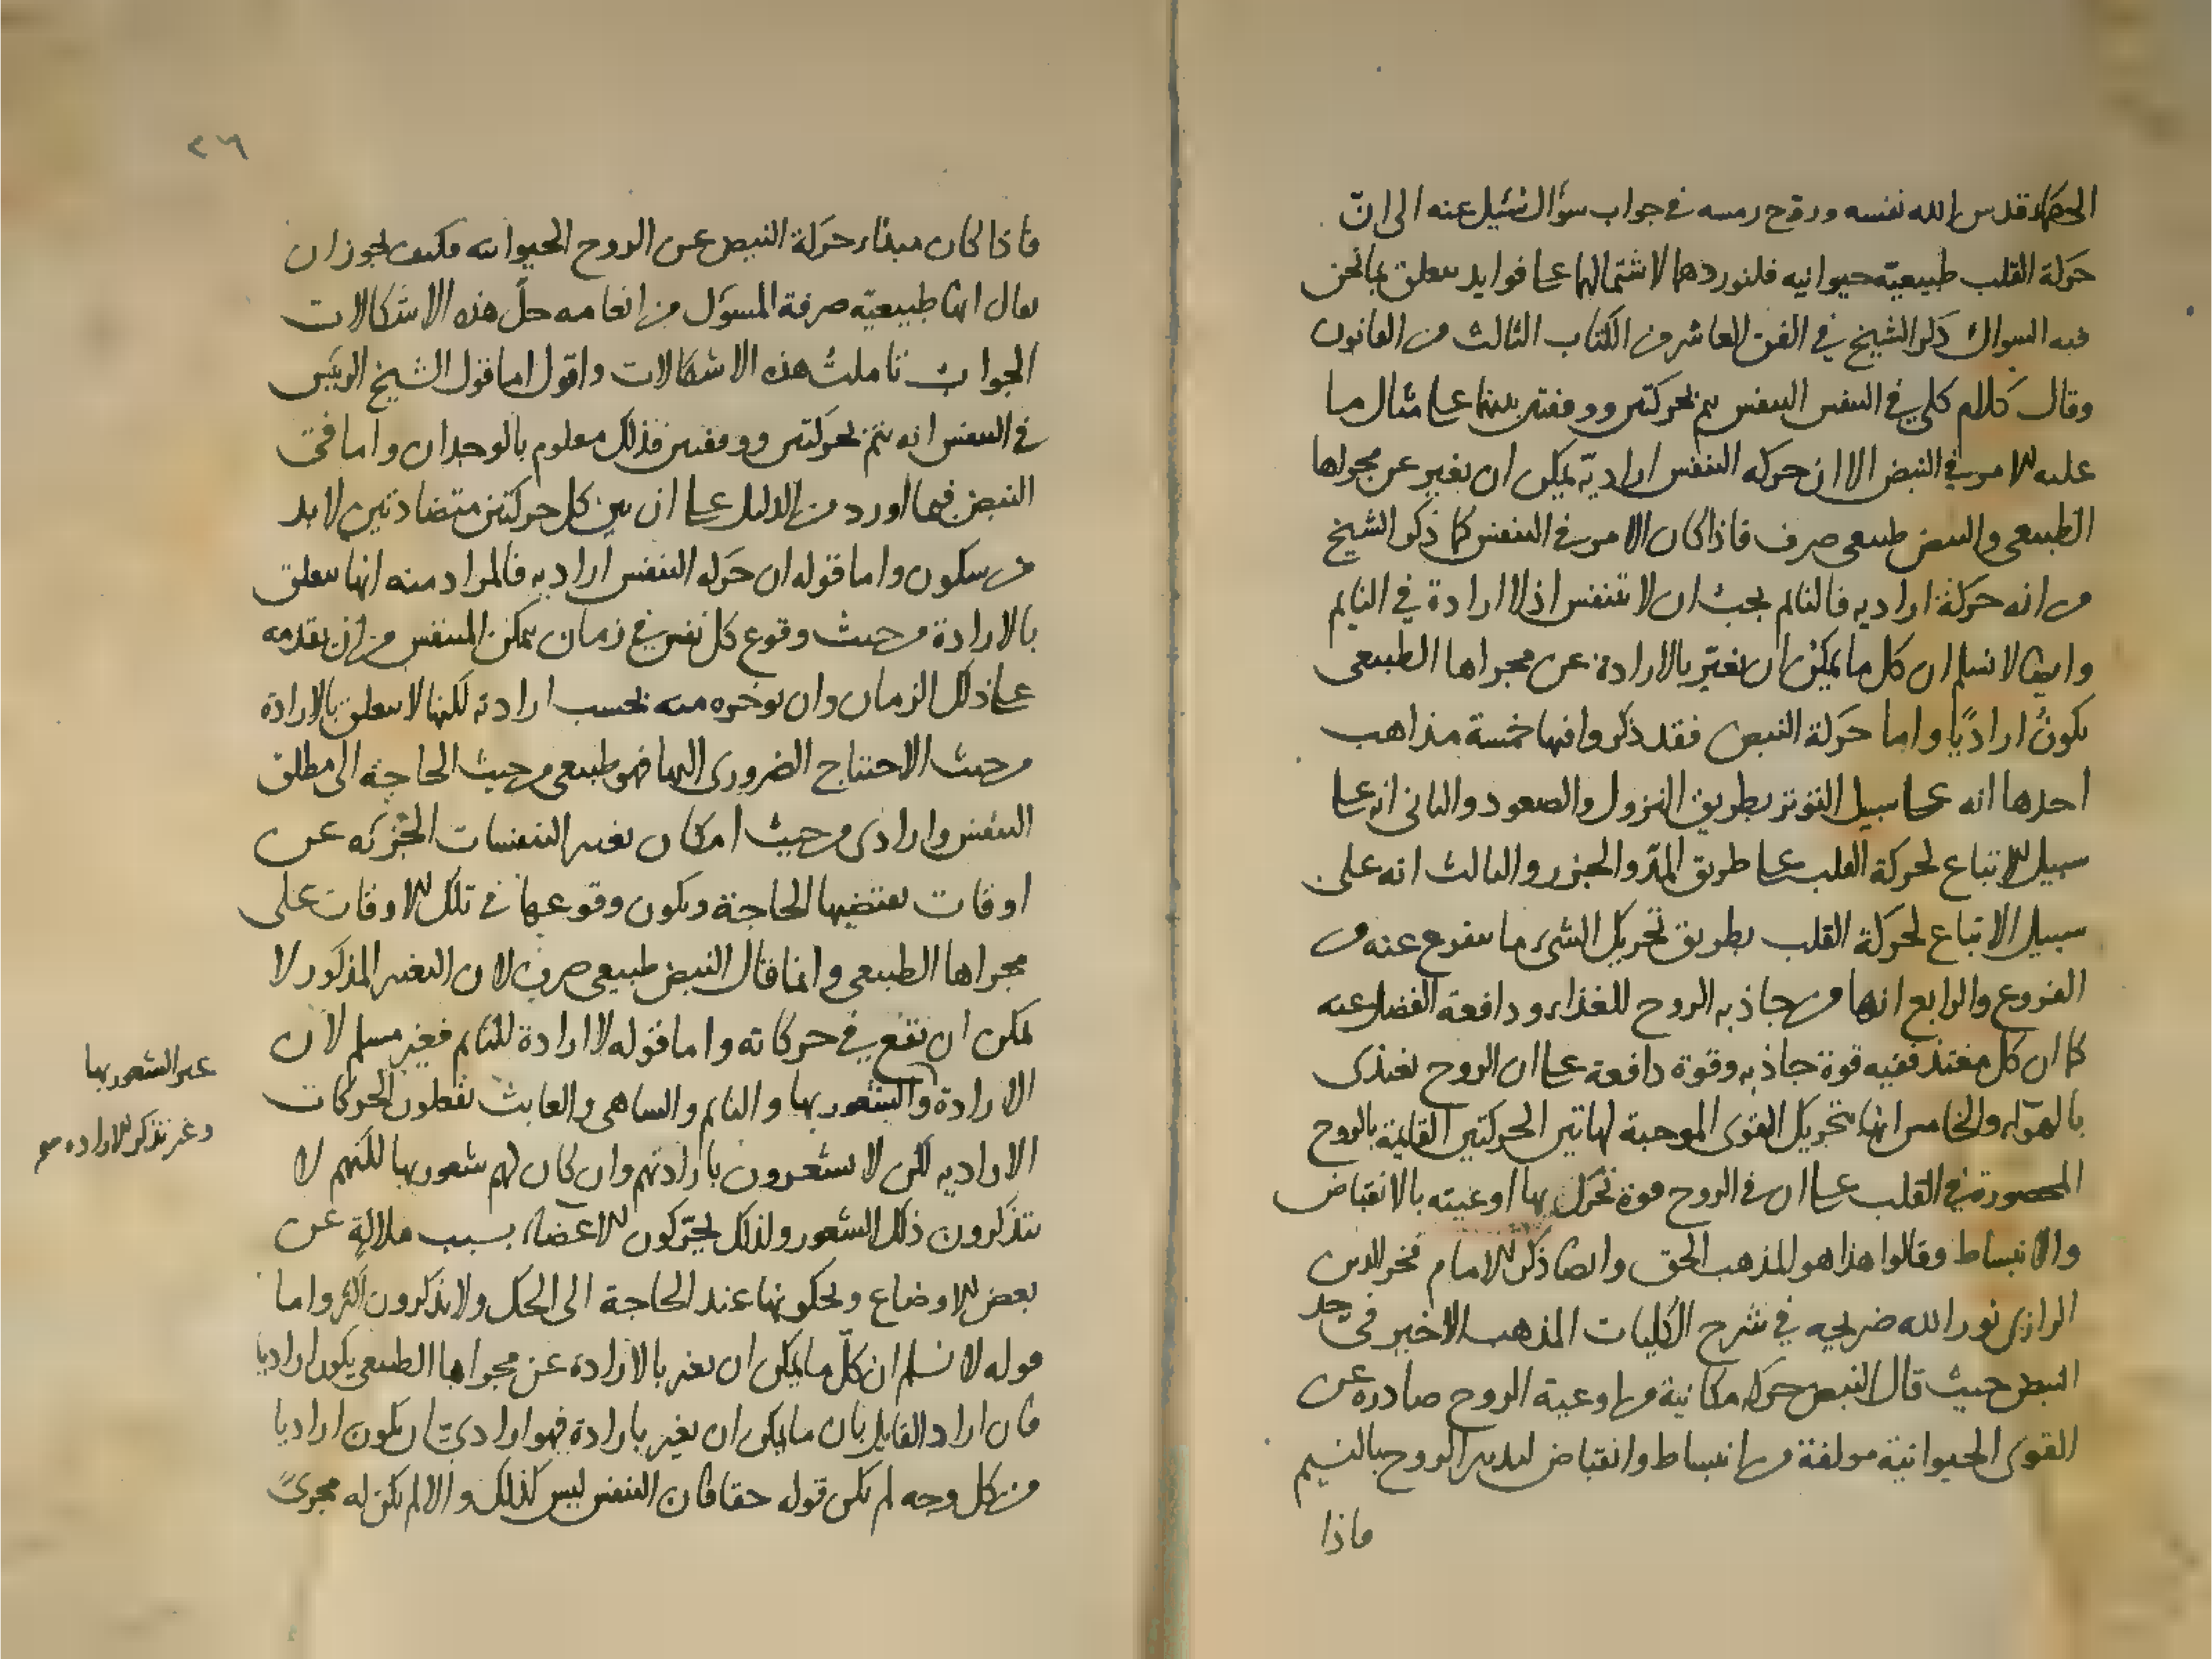 الحكماء قدس الله نفسه وروّح رمسه في جواب سؤال سُئيل عنه الى انّ
حركة القلب طبيعيّة حيوانيه فلنوردهما لاشتمالهما على فوايد يتعلق بما نحن
فيه السوال ذكر الشيخ في الفن العاشر من الكتاب الثالث من القانون
وقال كلام كلي في التنفس التنفس يتم بحركتين ووقفتين بينهما على مثال ما
عليه الامر في النبض الا ان حركه التنفس اراديّة يمكن ان يغير عن مجراها
الطبيعي والنبض طبيعي صرف فاذا كان الامر في التنفس كما ذكر الشيخ
من انه حركة اراديه فالنايم يجب ان لا يتنفس اذ لا ارادة في النايم
وايضا لا نسلم ان كل ما يمكن ان يتغيّر بالارادة عن مجراها الطبيعي
يكونُ اراديًا واما حركة النبض فقد ذكروا فيها خمسة مذاهب
احدها انه على سبيل التوتر بطريق النزول والصعود والثاني انه على
سبيل الاتباع لحركة القلب على طريق المدّ والجزر والثالث انه على
سبيل الاتباع لحركة القلب بطريق تحريك الشيء ما يتفرع عنه من
الفروع والرابع انها من جاذبه الروح للغذاء ودافعة الفضل عنه
كما ان كل مغتذ ففيه قوة جاذبه وقوة دافعة على ان الروح يغتذى
بالهوآء والخامس انها بتحريك القوى الموجبة لهاتين الحركتين القايمة بالروح
المحصورة في القلب على ان في الروح قوة تحرك بها اوعيته بالانقباض
والانبساط وقالوا هذا هو المذهب الحق وايضا ذكر الامام فخر الدين
الرازي نور الله ضريحه في شرح الكليات المذهب الاخير في حد
النبض حيث قال النبض حركه مكانية من اوعية الروح صادره عن
القوى الحيوانية مولفة من انبساط وانقباض لتدبير الروح بالنسيم
فاذا
٢٦
فاذا كان مبدأ حركة النبض عن الروح الحيوانيه فكيف يجوز ان
يقال انها طبيعيّه صرفة المسؤل من انعامه حلّ هذه الاشكالات
الجواب تاملت هذه الاشكالات واقول اما قول الشيخ الرئيس
في التنفس انه يتم بحركتين ووقفتين فذلك معلوم بالوجدان واما في
النبض فبما اورد من الدليل على ان بين كل حركتين متضادتين لا بد
من سكون واما قوله ان حركه التنفس اراديه فالمراد منه انها يتعلق
بالارادة من حيث وقوع كل نفس في زمان يمكن المتنفس من ان يقدمه
على ذلك الزمان وان يوخره منه بحسب ارادته لكنها لا يتعلق بالارادة
من حيث الاحتياج الضروري اليها فهو طبيعي من حيث الحاجة الى مطلق
التنفس وارادى من حيث امكان تغيير التنفسات الجزئيه عن
اوقات يقتضيها الحاجة ويكون وقوعها في تلك الاوقات على
مجراها الطبيعي وانما قال النبض طبيعي صرف لان التغير المذكور لا
يمكن ان يقع في حركاته واما قوله لا ارادة للنايم فغير مسلم لان
الارادة والشعور بها والنايم والساهي والعابث يفعلون الحركات
غير الشعور بها
وغير تذكر الاراده صح
الاراديه لكن لا يشعرون بارادتهم وان كان لهم شعور بها لكنهم لا
يتذكرون ذلك الشعور ولذلك يحرّكون الاعضاء بسبب ملالةٍ عن
بعض الاوضاع ويحكونها عند الحاجة الى الحك ولا يذكرون اكثر واما
قوله لا نسلم ان كلّ ما يمكن ان يغير بالارادة عن مجراها الطبيعي يكون اراديا
فان اراد القايل بان ما يمكن ان يغير بارادة فهو ارادىّ ان يكون اراديا
من كل وجه لم يكن قوله حقا فان التنفس ليس كذلك والا لم يكن له مجرىً